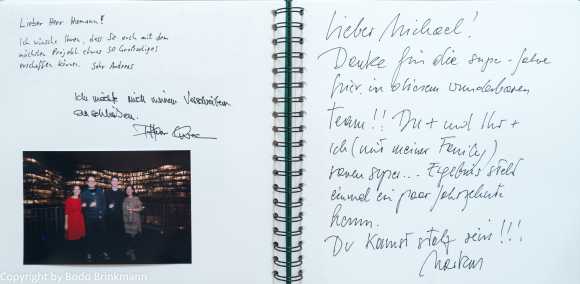 Lieber Herr Homann!
Ich wünsche Ihnen, dass Sie auch mit dem
nächsten Projekt etwas so Großartiges
erschaffen können.
Ich möchte mich meinem Vorschreiber
anschließen.
Lieber Michael!
Danke für die super-Jahre
hier in diesem wunderbaren
Team!! Du + und Ihr +
Ich (mit meiner Family)
waren super... Ergebnis steht
einmal ein paar Jahrzehnte
herum.
Du kannst stolz sein!!!
Markus
Copyright by Bodo Brinkmann